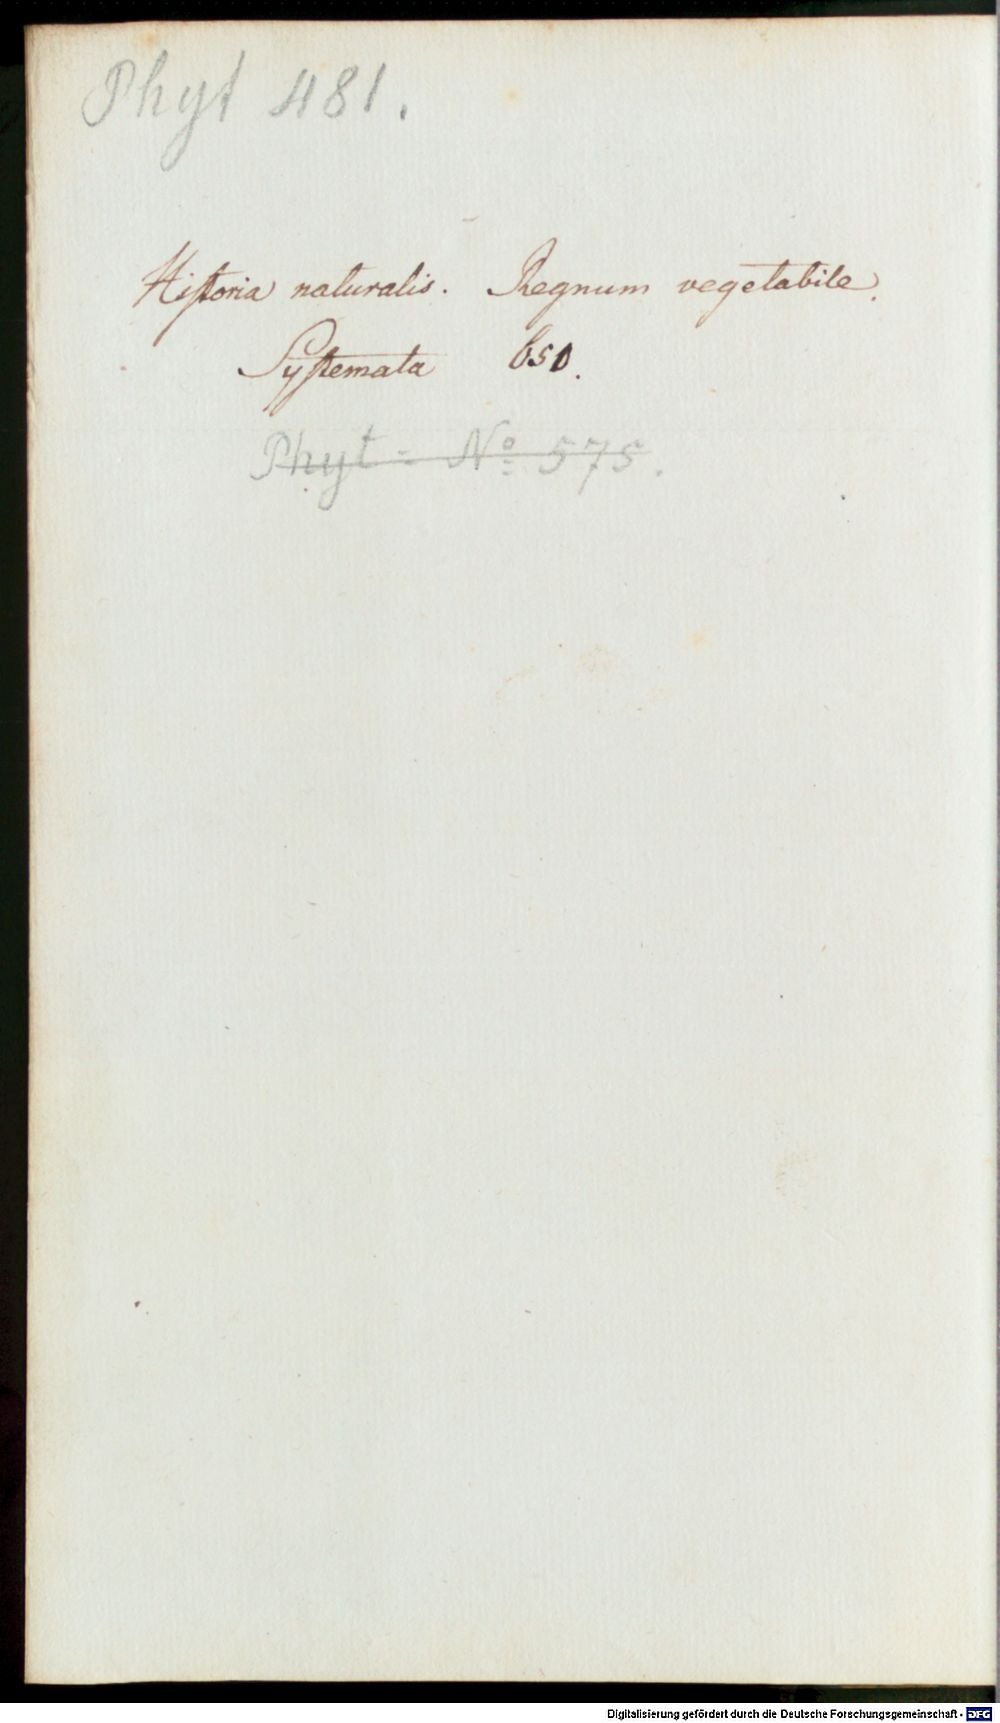 Phyt 481.
Hiſtoria naturalis. Regnum vegetabile.
Syſtemata 650.
Phyt - Nº 575.
Digitalisierung gefördert durch die Deutsche Forschungsgemeinschaft - DFG